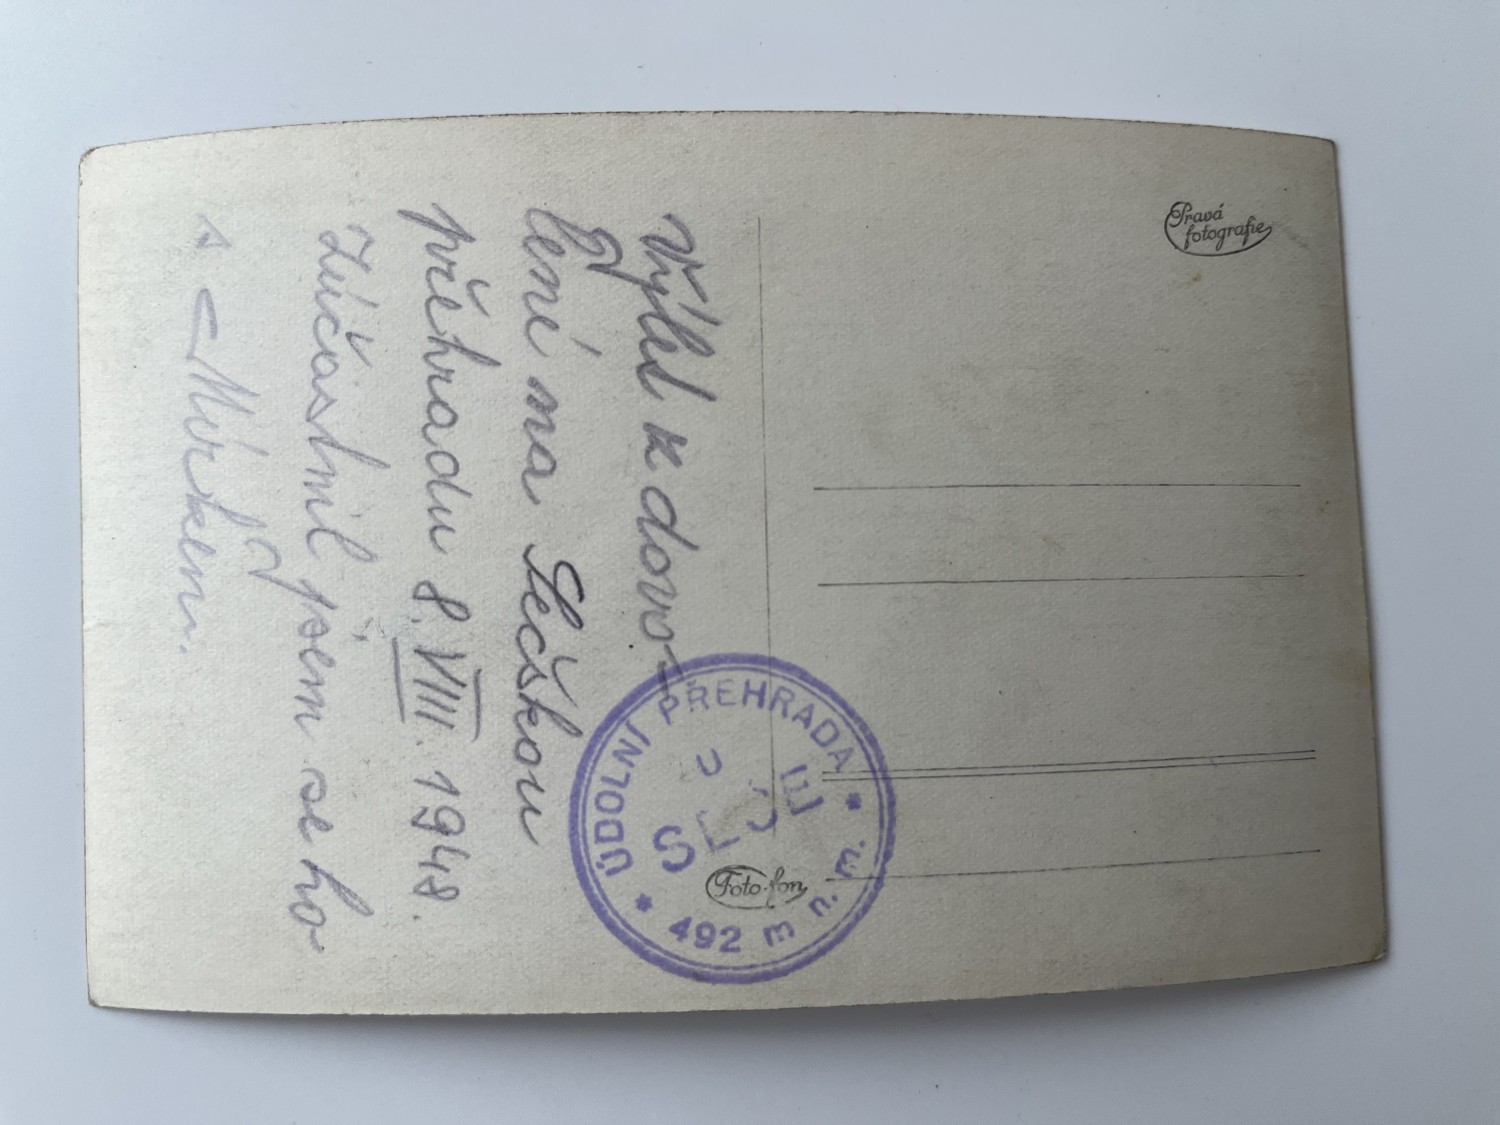 Výlet k dovo-
lené na Sečskou
přehradu 8. VIII. 1948.
Zúčastnil jsem se ho
s Mirkem.
Pravá
fotografie
ÚDOLNÍ PŘEHRADA
SEČ
* 492 m n. m. *
Foto-fon